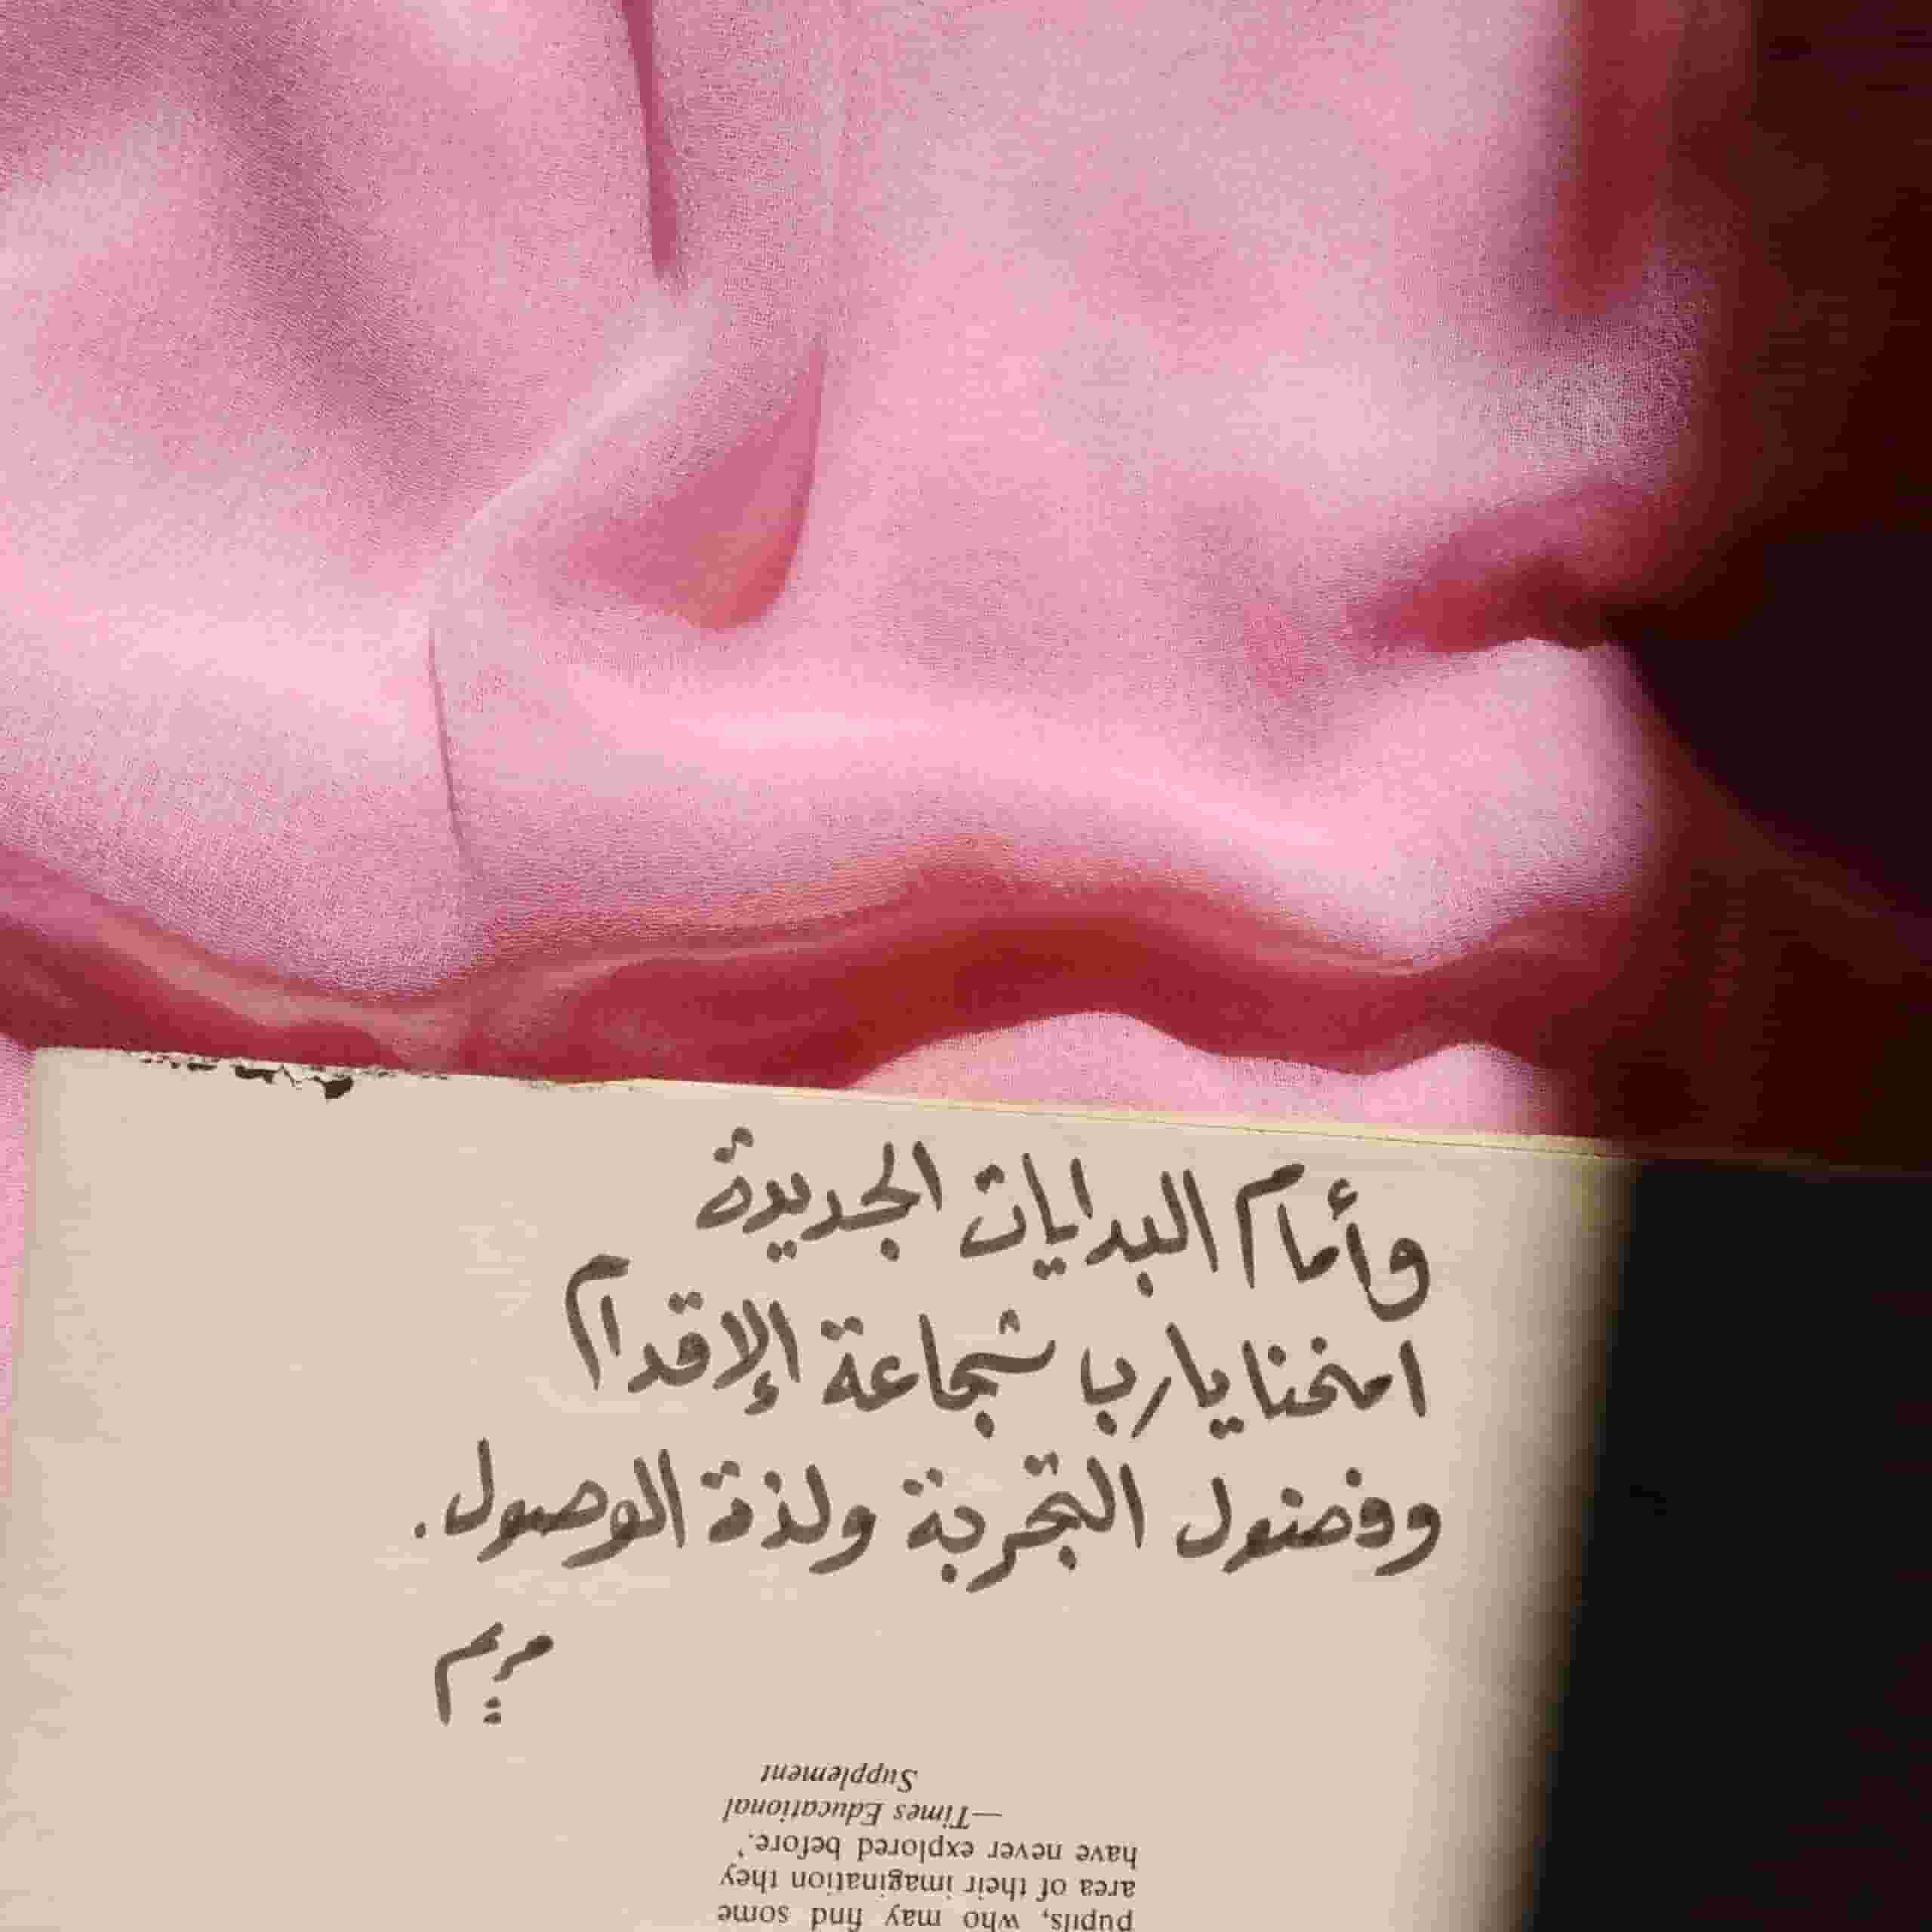 وأمام البدايات الجديدة
امنحنا يا رب شجاعة الإقدام
وفضول التجربة ولذة الوصول.
مريم
pupils, who may find some
area of their imagination they
have never explored before.'
—Times Educational
Supplement